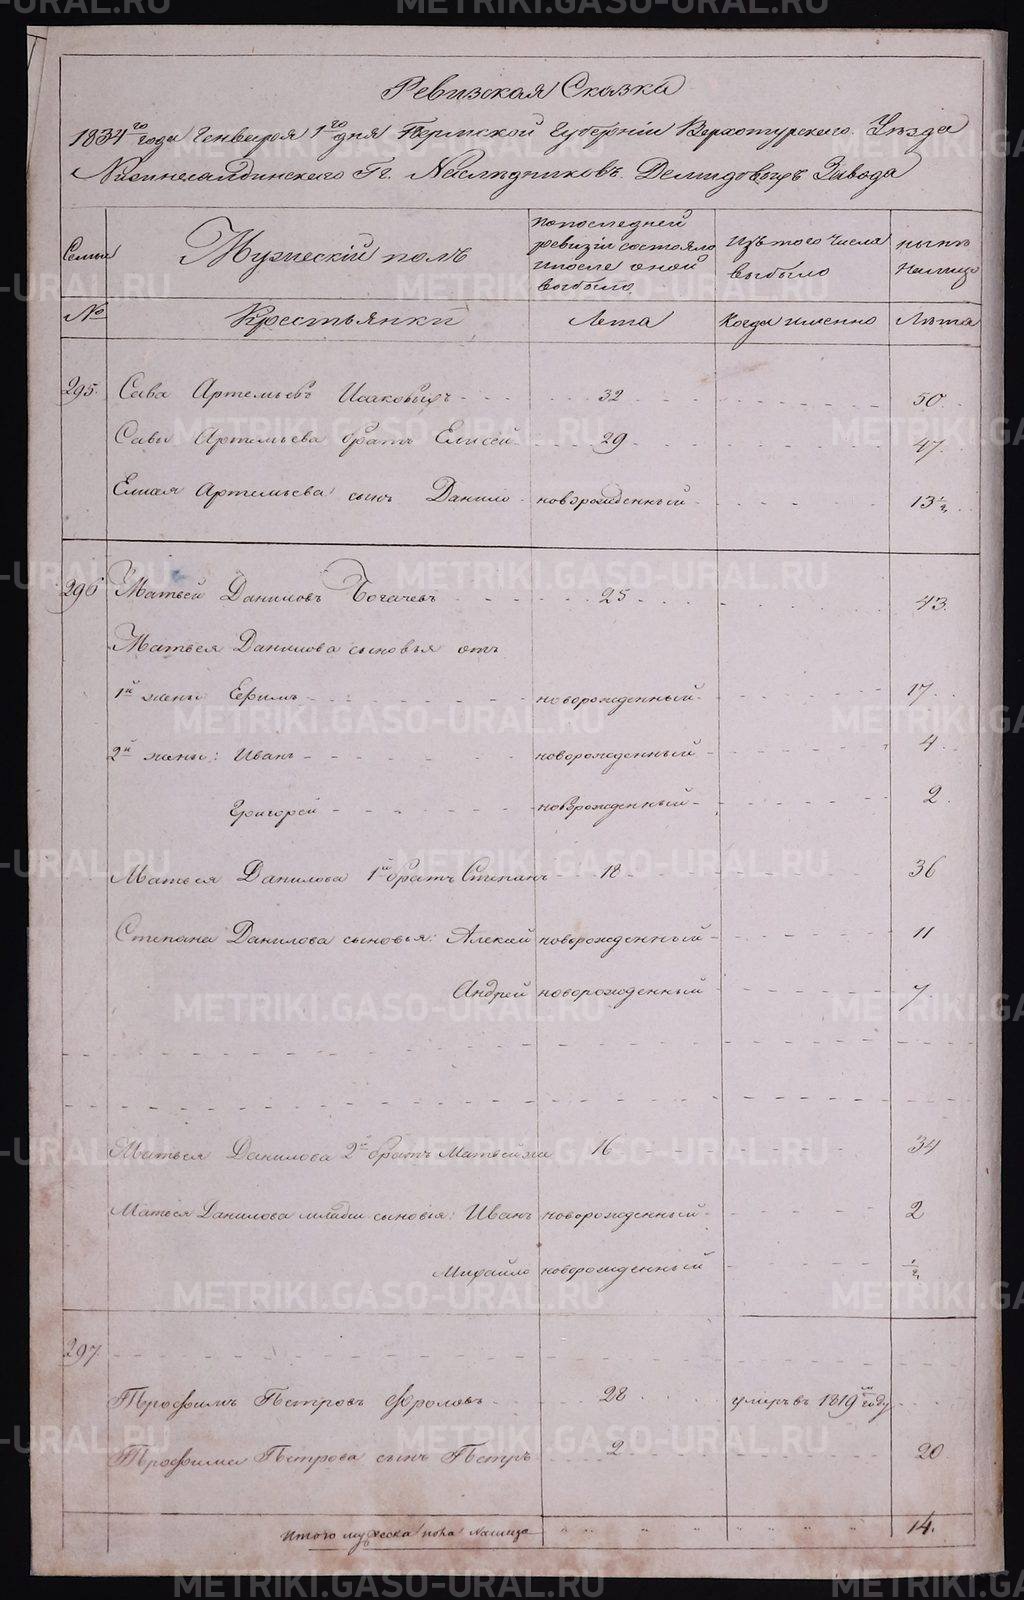 Ревизская Сказка
1834го года Генваря 1го дня Пермской Губернiи Верхотурскаго Уезда
Нижнесалдинскаго Гг. Наследниковъ Демидовыхъ Завода
Семьи
Мужескiй полъ
По последней ревизiи состояло и после оной выбыло
Изъ того числа выбыло
ныне на лицо
№
Крестьянки
Лета
Когда именно
Лета
295. Сава Артемьевъ Исаковыхъ 32 50
Савы Артемьева братъ Елисей 29 47
Елисея Артемьева сынъ Данило новорожденный 13 1/2
296 Матвей Даниловъ Богачевъ 25 43.
Матвея Данилова сыновья отъ
1й жены Ефимъ новорожденный 17
2й жены: Иванъ новорожденный 4
Григорей новорожденный 2
Матвея Данилова 1й братъ Степанъ 18 36
Степана Данилова сыновья: Алексей новорожденный 11
Андрей новорожденный 7
Матвея Данилова 2й братъ Матвей же 16 34
Матвея Данилова младш сыновья: Иванъ новорожденный 2
Михайло новорожденный 1/2
297.
Трофимъ Петровъ Фроловъ 28 умеръ въ 1819м году
Трофима Петрова сынъ Петръ 2 20
Итого мужеска пола налицо 14.
METRIKI.GASO-URAL.RU